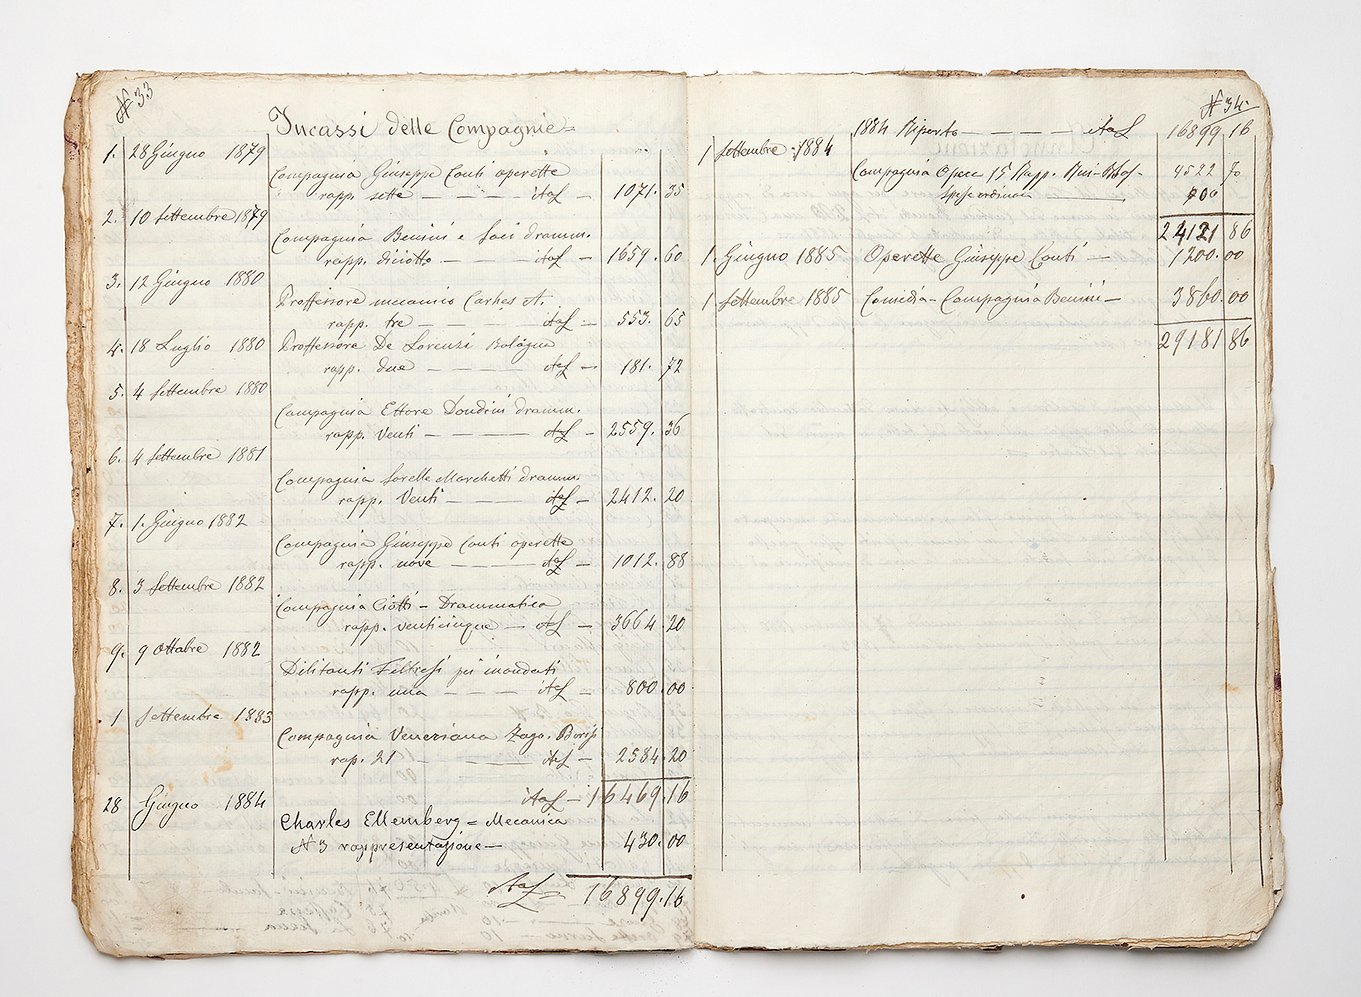 N 33
Incassi delle Compagnie=
1. 28 Giugno 1879
Compagnia Giuseppe Conti operette
rapp. sette — — — itaL — 1071. 35
2. 10 settembre 1879
Compagnia Benini e Soci dramm.
rapp. diciotto — — — itaL — 1659. 60
3. 12 Giugno 1880
Proffessore mecanico Carhes A.
rapp. tre — — — itaL — 553. 65
4. 18 Luglio 1880 Proffessore De Lorenzi Bologna
rapp. due — — — itaL — 181. 72
5. 4 settembre 1880
Compagnia Ettore Dondini dramm.
rapp. Venti — — — itaL — 2559. 36
6. 4 settembre 1881
Compagnia Sorelle Marchetti dramm.
rapp. Venti — — — itaL — 2412. 20
7. 1. Giugno 1882
Compagnia Giuseppe Conti operette
rapp. nove — — — itaL — 1012. 88
8. 3 Settembre 1882
Compagnia Ciotti – Drammatica
rapp. venticinque — itaL — 3664. 20
9. 9 ottobre 1882
Dilitanti Feltresi pei inondati
rapp. una — — — itaL — 800. 00
1 settembre 1883
Compagnia Veneziana Zago.
rap. 21 — — — itaL — 2584. 20
itaL — 16469. 16
28 Giugno 1884
Charles Ellemberg = Mecanica
N 3 rappresentazione — 430. 00
itaL= 16899. 16
N 34.
1884 Riporto — — — — itaL 16899 16
1 settembre 1884
Compagnia Opera 15 Rapp. 70
spese ordinarie
24121 86
1. Giugno 1885 Operette Giuseppe Conti — 1200. 00
1 settembre 1885 Comedia – Compagnia Benini — 3860. 00
29181 86